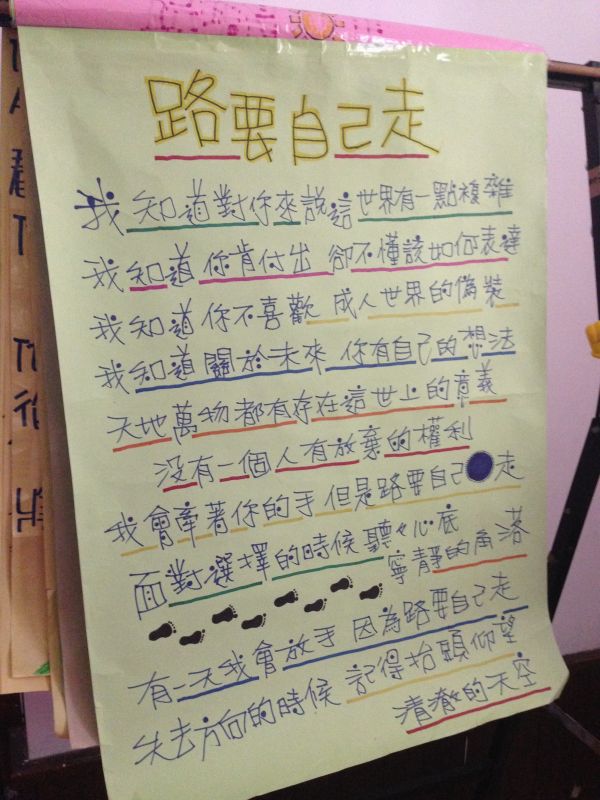 路要自己走
我知道對你來說這世界有一點複雜
我知道你肯付出 卻不懂該如何表達
我知道你不喜歡 成人世界的偽裝
我知道關於未來 你有自己的想法
天地萬物都有存在這世上的意義
沒有一個人有放棄的權利
我會牽著你的手 但是路要自己走
面對選擇的時候 聽々心底
寧靜的角落
有一天我會放手 因為路要自己走
失去方向的時候 記得抬頭仰望
清澈的天空